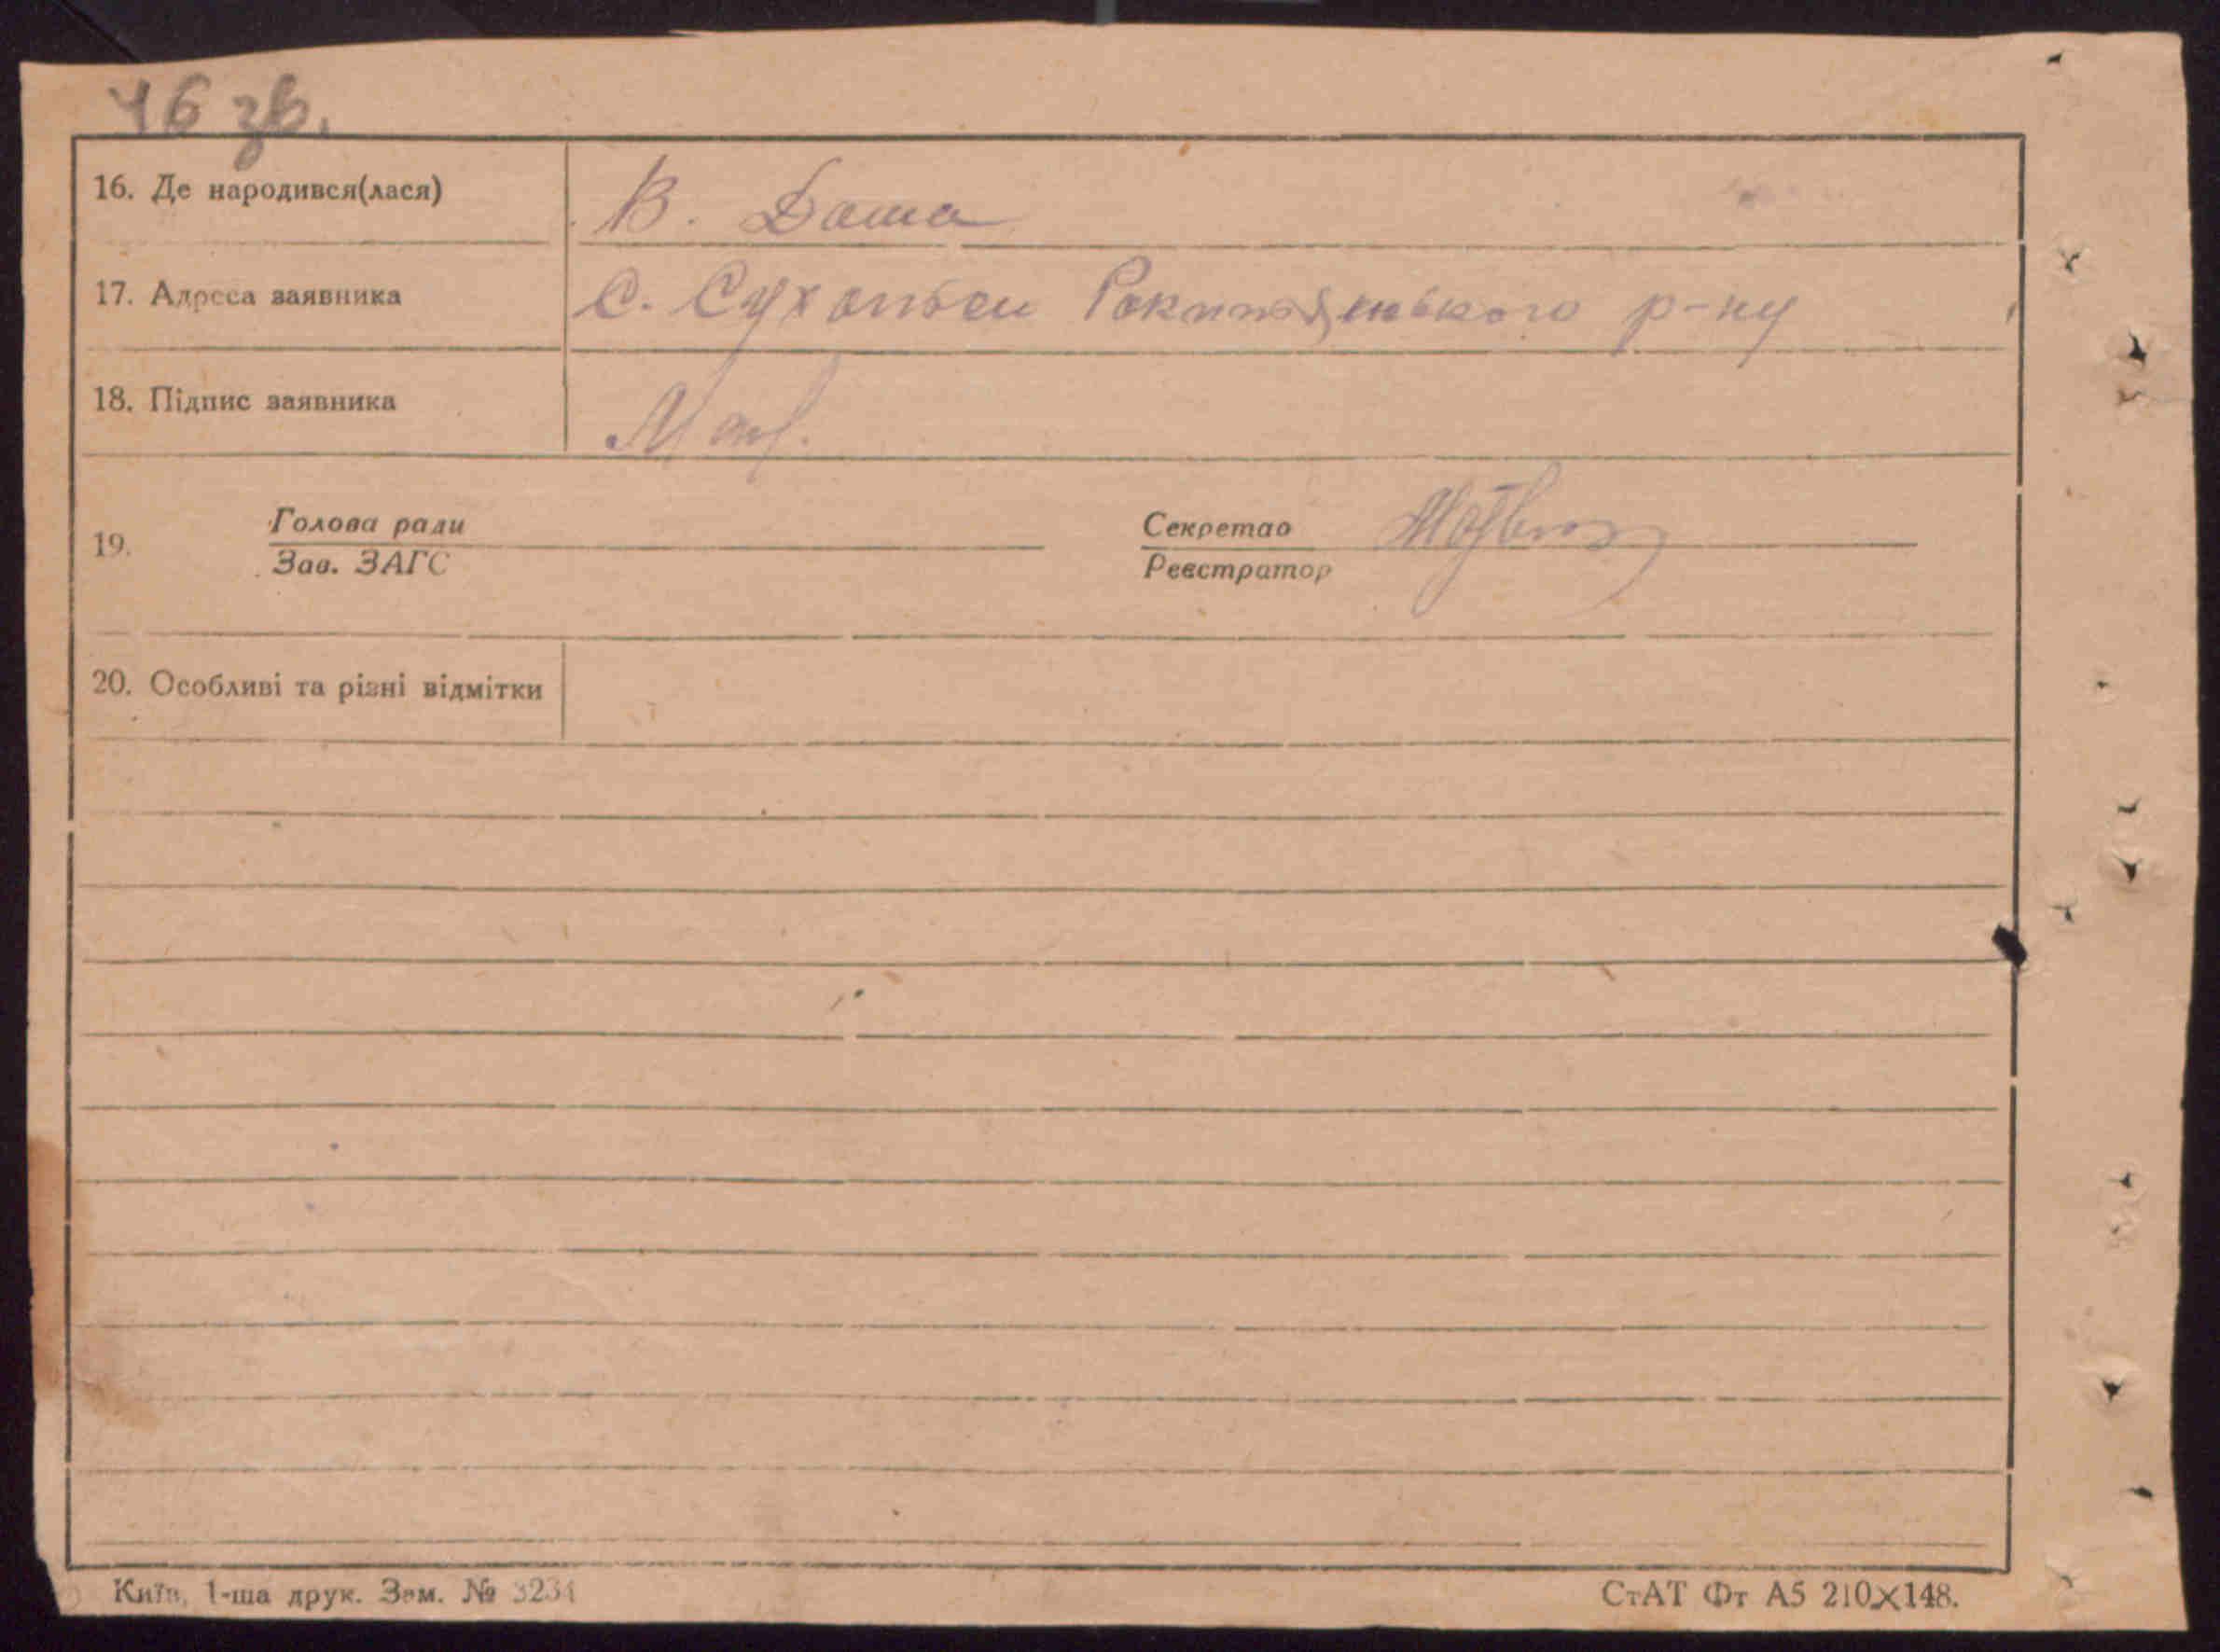 46 зв.
16. Де народився(лася) В. Дома
17. Адреса заявника С. Сухоліси Рокитнянського р-ну
18. Підпис заявника
19. Голова ради Секретар
Зав. ЗАГС Реєстратор
20. Особливі та різні відмітки
Київ, 1-ша друк. Зам. № 3234
СтАТ Фт А5 210×148.